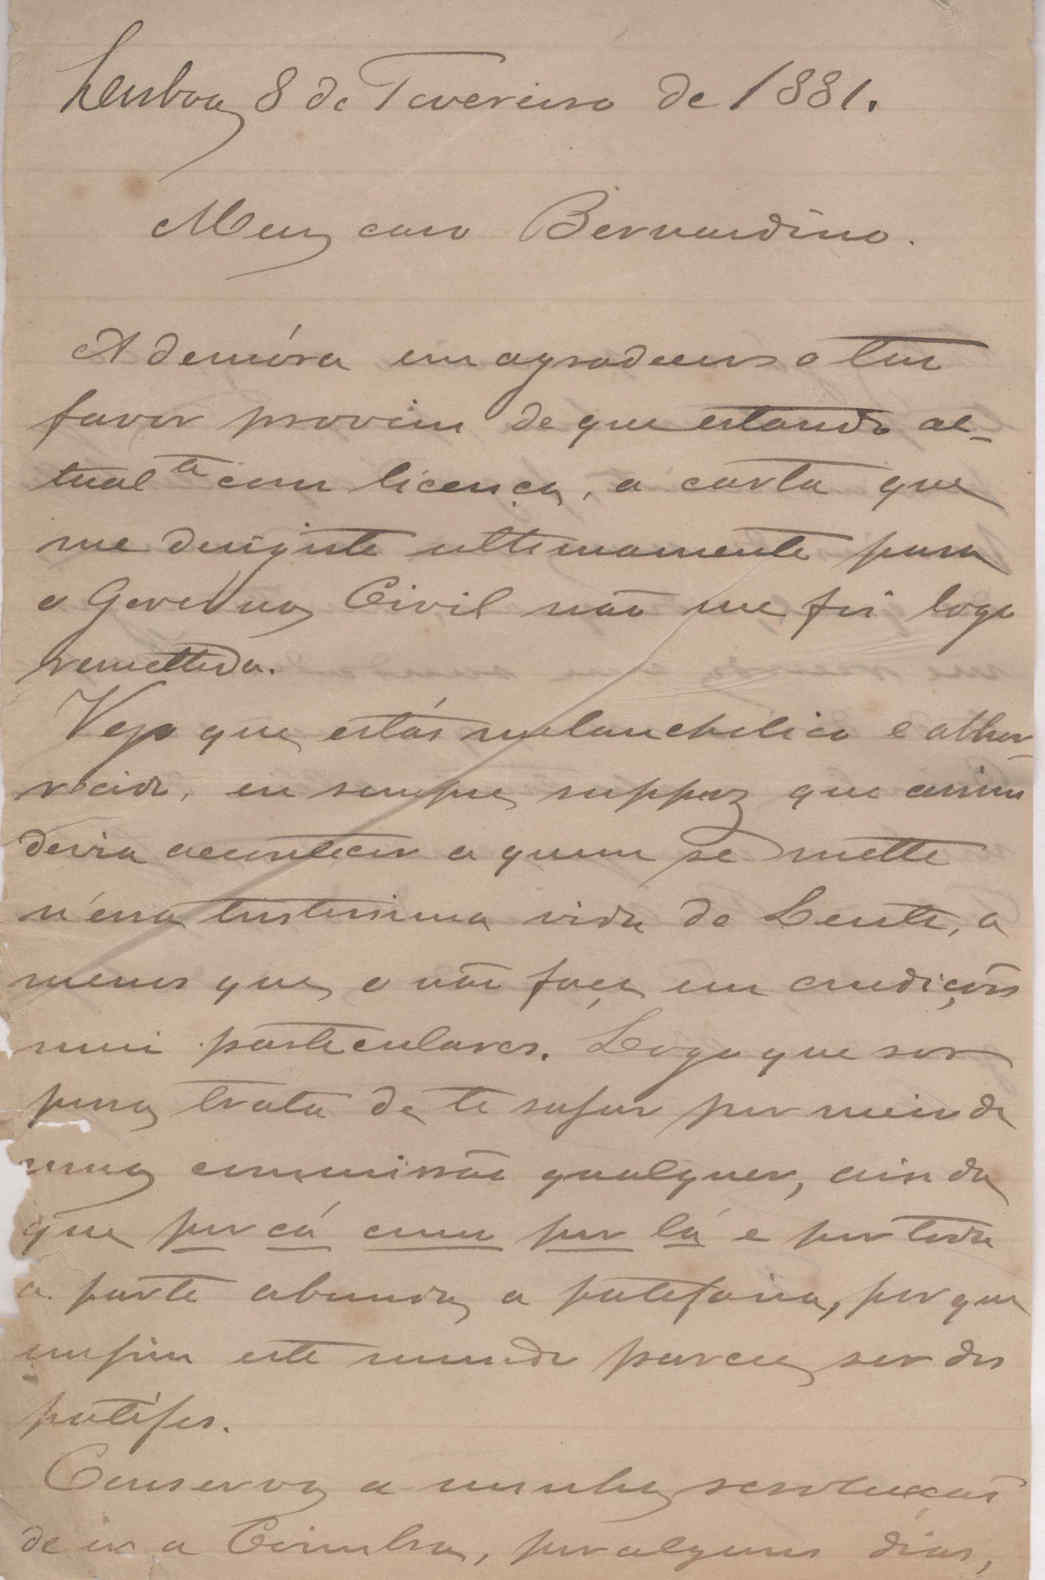 Lisboa 8 de Fevereiro de 1881.
Meu caro Bernardino.
A demóra em agradecer o teu
favor provém de que estando ac-
tual.te com licença, a carta que
me dirigiste ultimamente para
o Governo Civil não me foi logo
remettida.
Vejo que estás melancholico e abhor-
recido, eu sempre suppuz que assim
devia acontecer a quem se mette
n'essa tristissima vida de Lente, a
menos que o não faça em condições
mui particulares. Logo que ser
possa trata de te safar por meio de
uma commissão qualquer, ainda
que por cá como por lá e por toda
a parte abunda a patifaria, porque
emfim este mundo parece ser dos
patifes.
Conservo a minha resolução
de ir a Coimbra, por alguns dias,